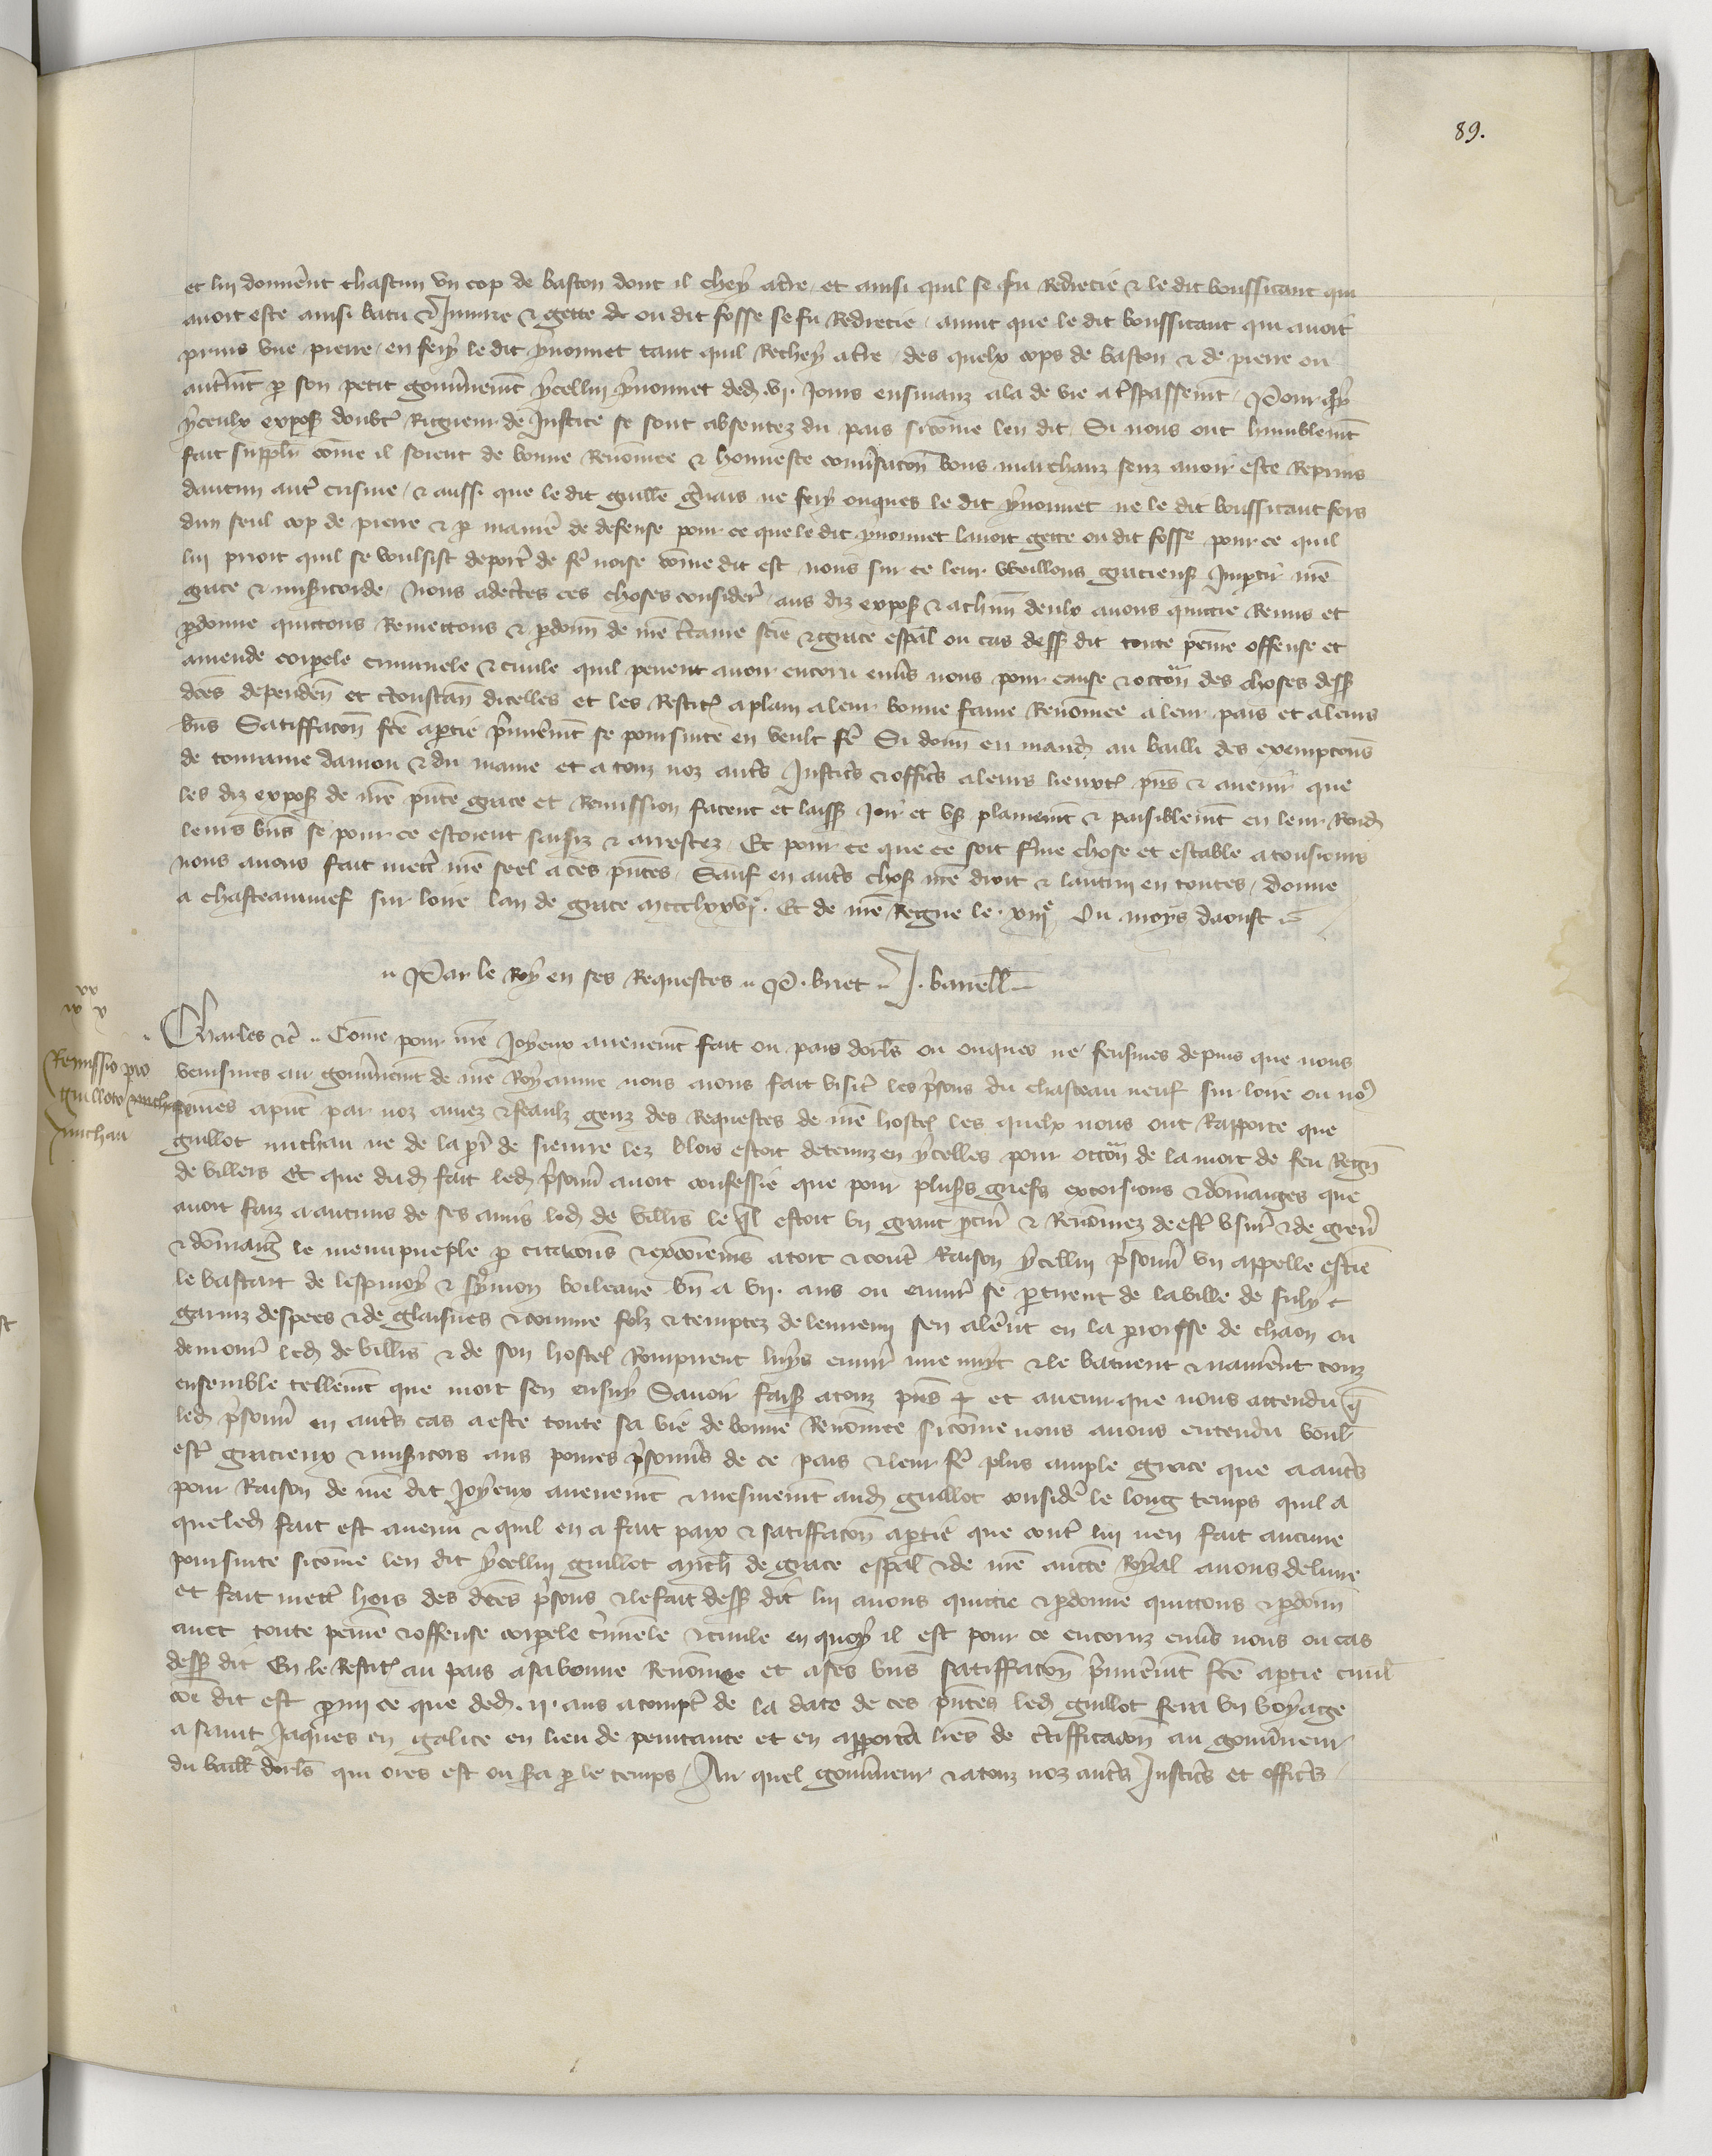 89.
et lui donnerent chascun un cop de baston dont il chey a terre et ainsi quil se fu redrecie & le dit boussicaut qui
avoit este ainsi batu & Injurie & gette ou dit fosse se fu redrecie avint que le dit boussicaut qui avoit
prins une pierre en fery le dit yvonnet tant quil rechey a terre des quelx cops de baston & de pierre ou
autrement par son petit gouvernement ycellui yvonnet dedens .vj. jours ensuianz ala de vie a trespassement Pour quoy
yceulx expos doubtans rigueur de Justice se sont absentez du pais si comme len dit Si nous ont humblement
fait supplier comme il soient de bonne renommee & honneste conversacion bons marchanz senz avoir este reprins
daucun autre crisme & aussi que le dit guillaume ne fery onques le dit yvonnet ne le dit boussicaut fors
dun seul cop de pierre & par maniere de defense pour ce que le dit yvonnet lavoit gette ou dit fosse pour ce quil
lui prioit quil se voulsist deporter de faire noise comme dit est nous sur ce leur vueillons gracieus impartir nostre
grace & misericorde Nous adecertes ces choses considerees aus diz expos & a chascun deulx avons quictie remis et
pardonne quictons remectons & pardonnons de nostre certaine science & grace especial ou cas dessus dit toute peinne offense et
amende corporele criminele & civile quil peuent avoir encoru envers nous pour cause & occasion des choses dessus
dictes dependences et circonstances dicelles et les restituons a plain a leur bonne fame renommee a leur pais et a leurs
biens Satiffacion faicte a partie premierement se poursuite en veult faire Si donnons en mandement au bailli des exempcions
de touraine danjou & du maine et a touz noz autres Justiciers & officiers a leurs lieuxtenans presens & avenir que
les diz expos de nostre presente grace et remission facent et laissent joir et user plainement & paisiblement en leur rendant
leurs biens se pour ce estoient saisiz & arrestez Et pour ce que ce soit ferme chose et estable a tousjours
nous avons fait mectre nostre seel a ces presentes Sauf en autres choses nostre droit & lautrui en toutes donne
a chasteauneuf sur loire lan de grace mccclxxvj. Et de nostre regne le xiije Ou moys daoust
Par le Roy en ses requestes P. briet J. barrell
Remissio pro
guilloto
michau
Charles etc Comme pour nostre Joyeux avenement fait ou pais dorliens ou onques ne feusmes depuis que nous
venismes au gouvernement de nostre Royaume nous aions fait visiter les prisons du chasteau neuf sur loire ou nous
sommes a present par noz amez & feaulz genz des requestes de nostre hostel les quelx nous ont rapporte que
guillot michau ne de la parroisse de sieuvre lez blois estoit detenuz en ycelles pour occasion de la mort de feu Regnaut
de villers Et que dudit fait ledit prisonnier avoit confessie que pour plusieurs griefs extorsions & dommaiges que
avoit faiz a aucuns de ses amis ledit de villers le quel estoit un grant & renommez destre usurier & de grever
& dommager le menu pueple par citacions & excommeniemens a tort & contre raison ycellui prisonnier un appelle estienne
le bastart de lespinoy & symon boileaue un a vij. ans ou environ se partirent de la ville de suly
garniz despees & de glaisves & comme folz & temptez de lennemi sen alerent en la parroisse de chaon ou
demouroit ledit de villers & de son hostel rompirent luys environ mie nuyt & le batirent & navrerent touz
ensemble tellement que mort sen ensuy Savoir faisons a touz presens et avenir que nous attendu que
ledit prisonnier en autres cas a este toute sa vie de bonne renommee si comme nous avons entendu voulans
estre gracieux & misericors aus povres prisonniers de ce pais & leur faire plus ample grace que a autres
pour raison de nostre dit joyeux avenement & mesmement audit guillot considere le long temps quil a
que ledit fait est avenu & quil en a fait paix & satiffacion a partie que contre lui nen fait aucune
poursuite si comme len dit ycellui guillot michau de grace especial & de nostre auctorite Royal avons delivre
et fait mectre hors des dictes prisons & le fait dessus dit lui avons quictie & pardonne quictons & pardonnons
avec toute peinne & offense corporele criminele & civile en quoy il est pour ce encoruz envers nous ou cas
dessus dit En le restituant au pais a sa bonne renommee et a ses biens satiffacion premierement faicte a partie civilement
comme dit est parmi ce que dedens .ij. ans a compter de la date de ces presentes ledit guillot fera un voyage
a saint Jaques en galice en lieu de penitance et en apportera lettres de certifficacion au gouverneur
du bailliage dorliens qui ores est ou sera par le temps Au quel gouverneur & a touz noz autres Justiciers et officiers